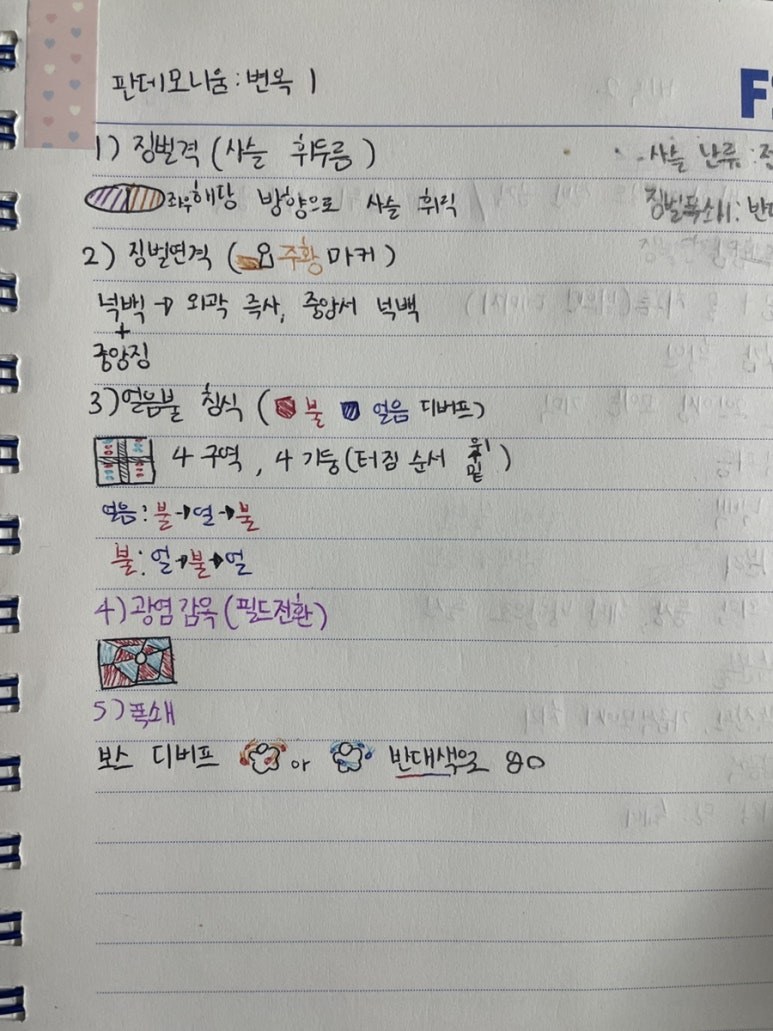 판데모니움 : 변옥 1
F
1) 징벌격 (사슬 휘두름)
- 사슬 난류 : 전
좌우 해당 방향으로 사슬 휘릭
징벌폭쇄 : 반대
2) 징벌연격 ( 주황 마커)
넉백 → 외곽 즉사, 중앙서 넉백
+
중앙징
3) 얼음불 침식 ( 불 얼음 디버프)
4 구역, 4 기둥 (터짐 순서 )
얼음 : 불→얼→불
불 : 얼→불→얼
4) 광염감옥 (필드전환)
5) 폭쇄
보스 디버프 or 반대색으로 go